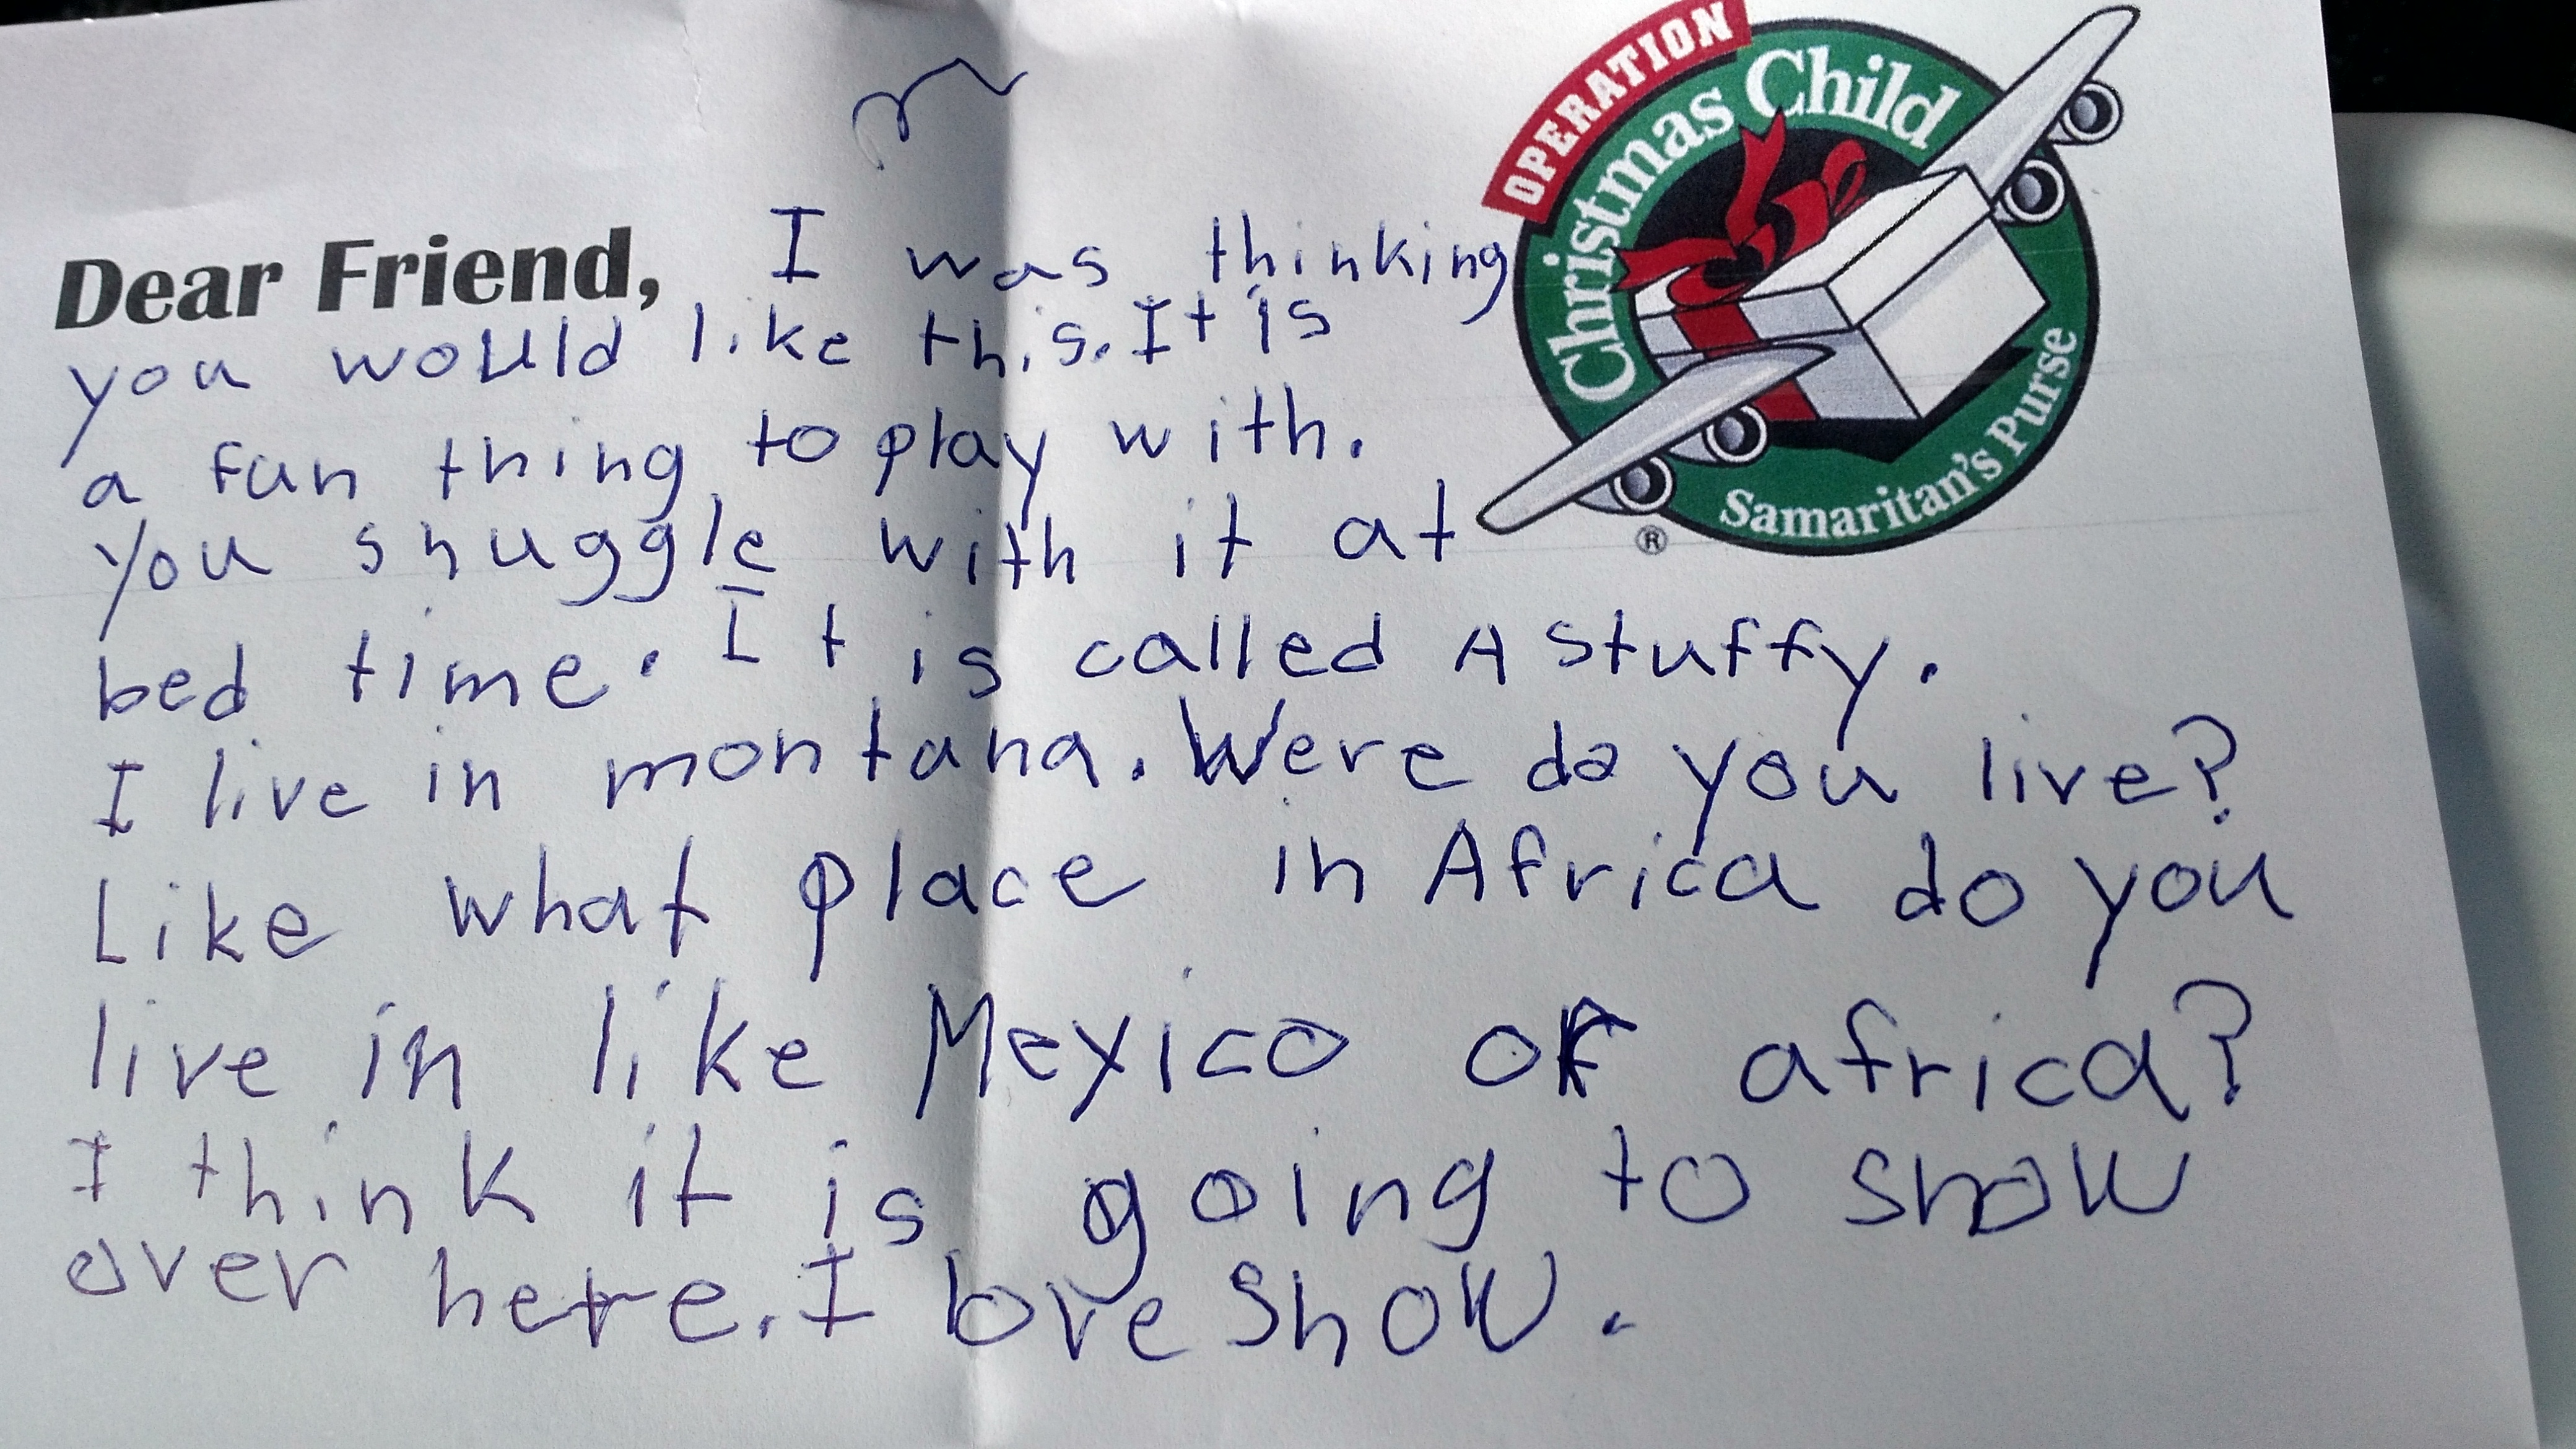 OPERATION
Christmas Child
Samaritan's Purse
®
Dear Friend, I was thinking
you would like this. It is
a fun thing to play with.
you snuggle with it at
bed time. It is called A stuffy.
I live in montana. Were do you live?
Like what place in Africa do you
live in like Mexico of africa?
I think it is going to snow
over here. I love snow.